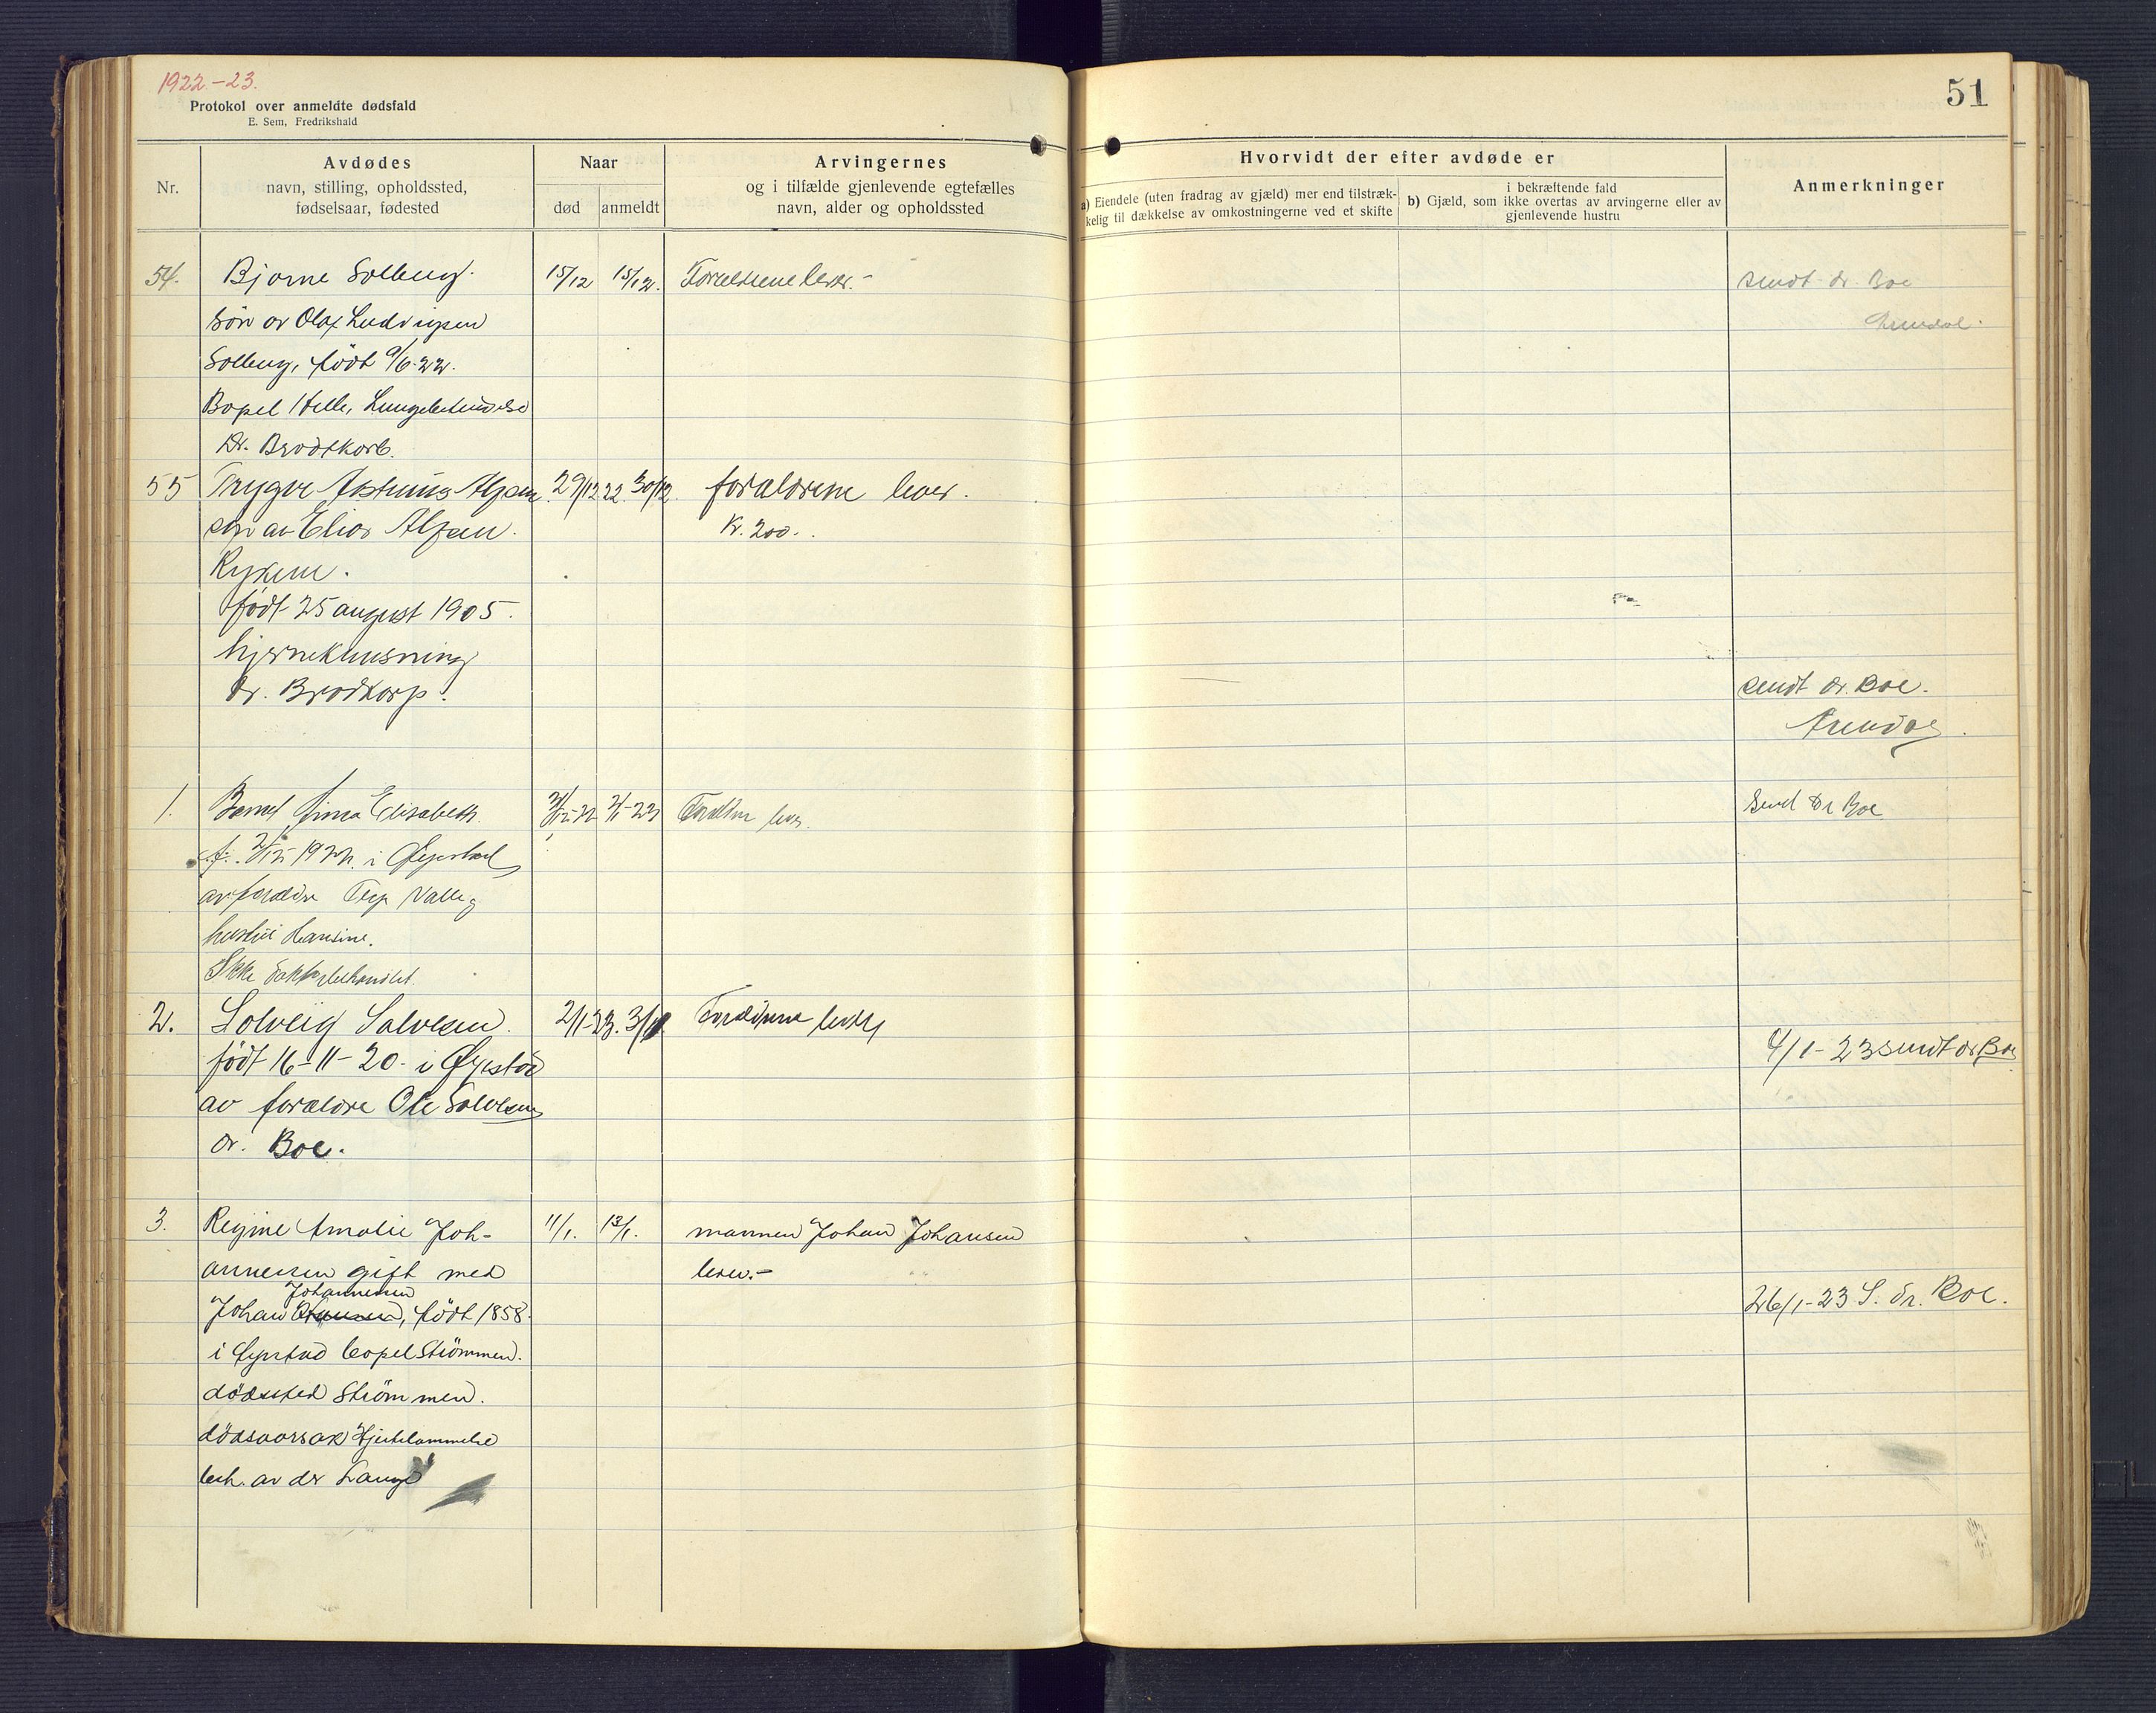 1922-23.
Protokol over anmeldte dødsfald
E. Sem, Fredrikshald
51
Nr.
Avdødes
navn, stilling, opholdssted,
fødselsaar, fødested
Naar
død
anmeldt
Arvingernes
og i tilfælde gjenlevende egtefælles
navn, alder og opholdssted
Hvorvidt der efter avdøde er
a) Eiendele (uten fradrag av gjæld) mer end tilstræk-
kelig til dækkelse av omkostningerne ved et skifte
i bekræftende fald
b) Gjæld, som ikke overtas av arvingerne eller av
gjenlevende hustru
Anmerkninger
54. Bjarne Solberg. 15/12 15/12. Forældrene lever.- sendt dr. Boe
søn av Olaf Ludvigsen Arendal.
Solberg, født 9/6-22.
Bopel Helle, Lungebetændelse
Dr. Brodtkorb.
55 Trygve Alfsen 29/12 22. 30/12. forældrene lever.
søn av Elias Alfsen. Kr. 200.
Rykene.
født 25 august 1905.
hjerneknusning
dr. Brodkorp. sendt dr. Boe.
Arendal.
1. Barnet Anna Elisabeth. 31/12-22 2/1-23 Forældre lever. Send Dr Boe
f. 2/12 1922. i Øyestad
av forældre Valle og
hustru Hansine.
Ikke doktorbehandlet.
2. Solveig Salvesen. 2/1-23. 3/1. Forældrene lever
født 16-11-20. i Øyestad 4/1-23 sendt dr Boe
av forældre Ole Salvesen
dr. Boe.
3. Regine Amalie Joh- 11/1. 13/1. mannen Johan Johansen
annesen gift med lever.-
Johannesen
Johan, født 1858. 26/1-23 S. dr. Boe.
i Øyestad bopel Strömmen.
dödssted Strömmen.
dödsaarsak Hjertelammelse
beh. av dr Lange